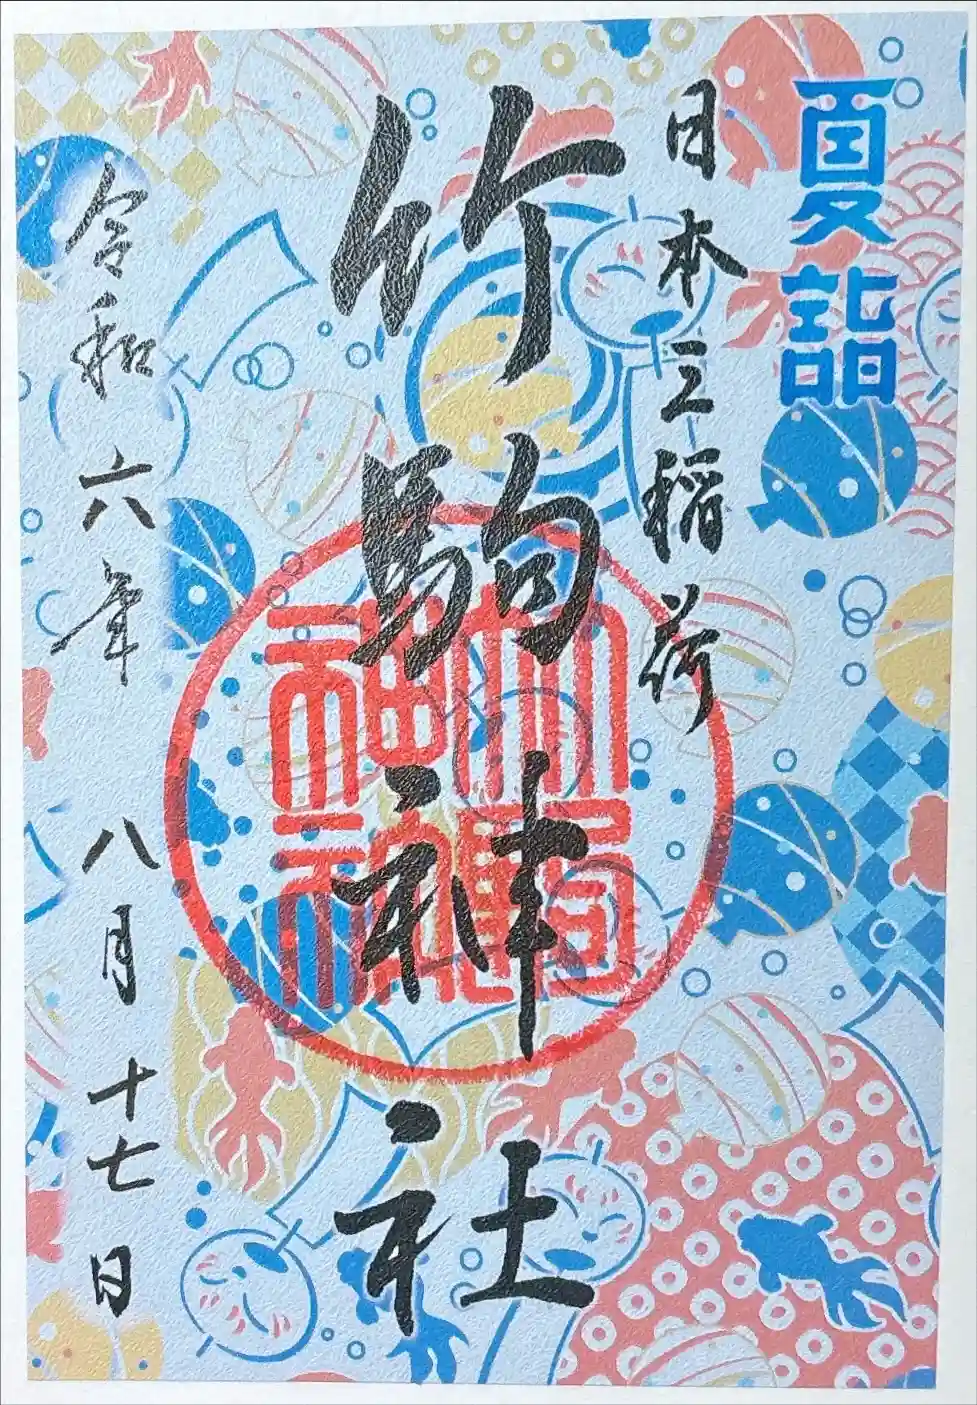 夏詣
日本三稲荷
竹駒神社
竹駒
神社
令和六年
八月十七日